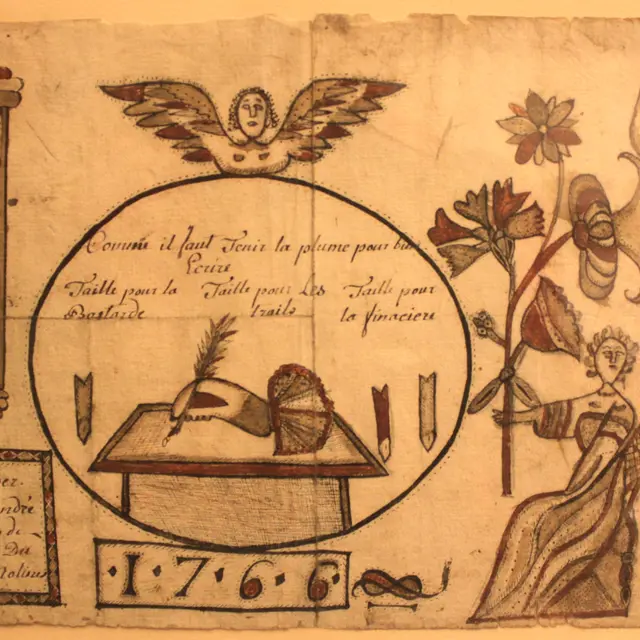 Comme il faut Tenir la plume pour bien
Ecrire
Taille pour la Taille pour Les Taille pour
Bastarde traits la finaciere
1766